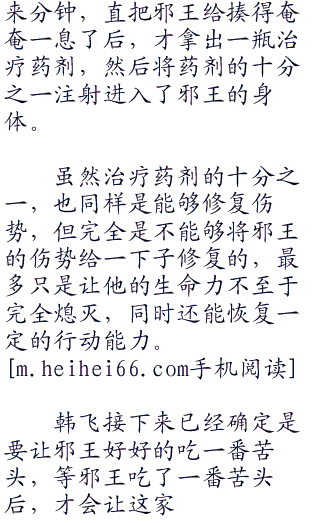 来分钟，直把邪王给揍得奄
奄一息了后，才拿出一瓶治
疗药剂，然后将药剂的十分
之一注射进入了邪王的身
体。
虽然治疗药剂的十分之
一，也同样是能够修复伤
势，但完全是不能够将邪王
的伤势给一下子修复的，最
多只是让他的生命力不至于
完全熄灭，同时还能恢复一
定的行动能力。
[m.heihei66.com手机阅读]
韩飞接下来已经确定是
要让邪王好好的吃一番苦
头，等邪王吃了一番苦头
后，才会让这家